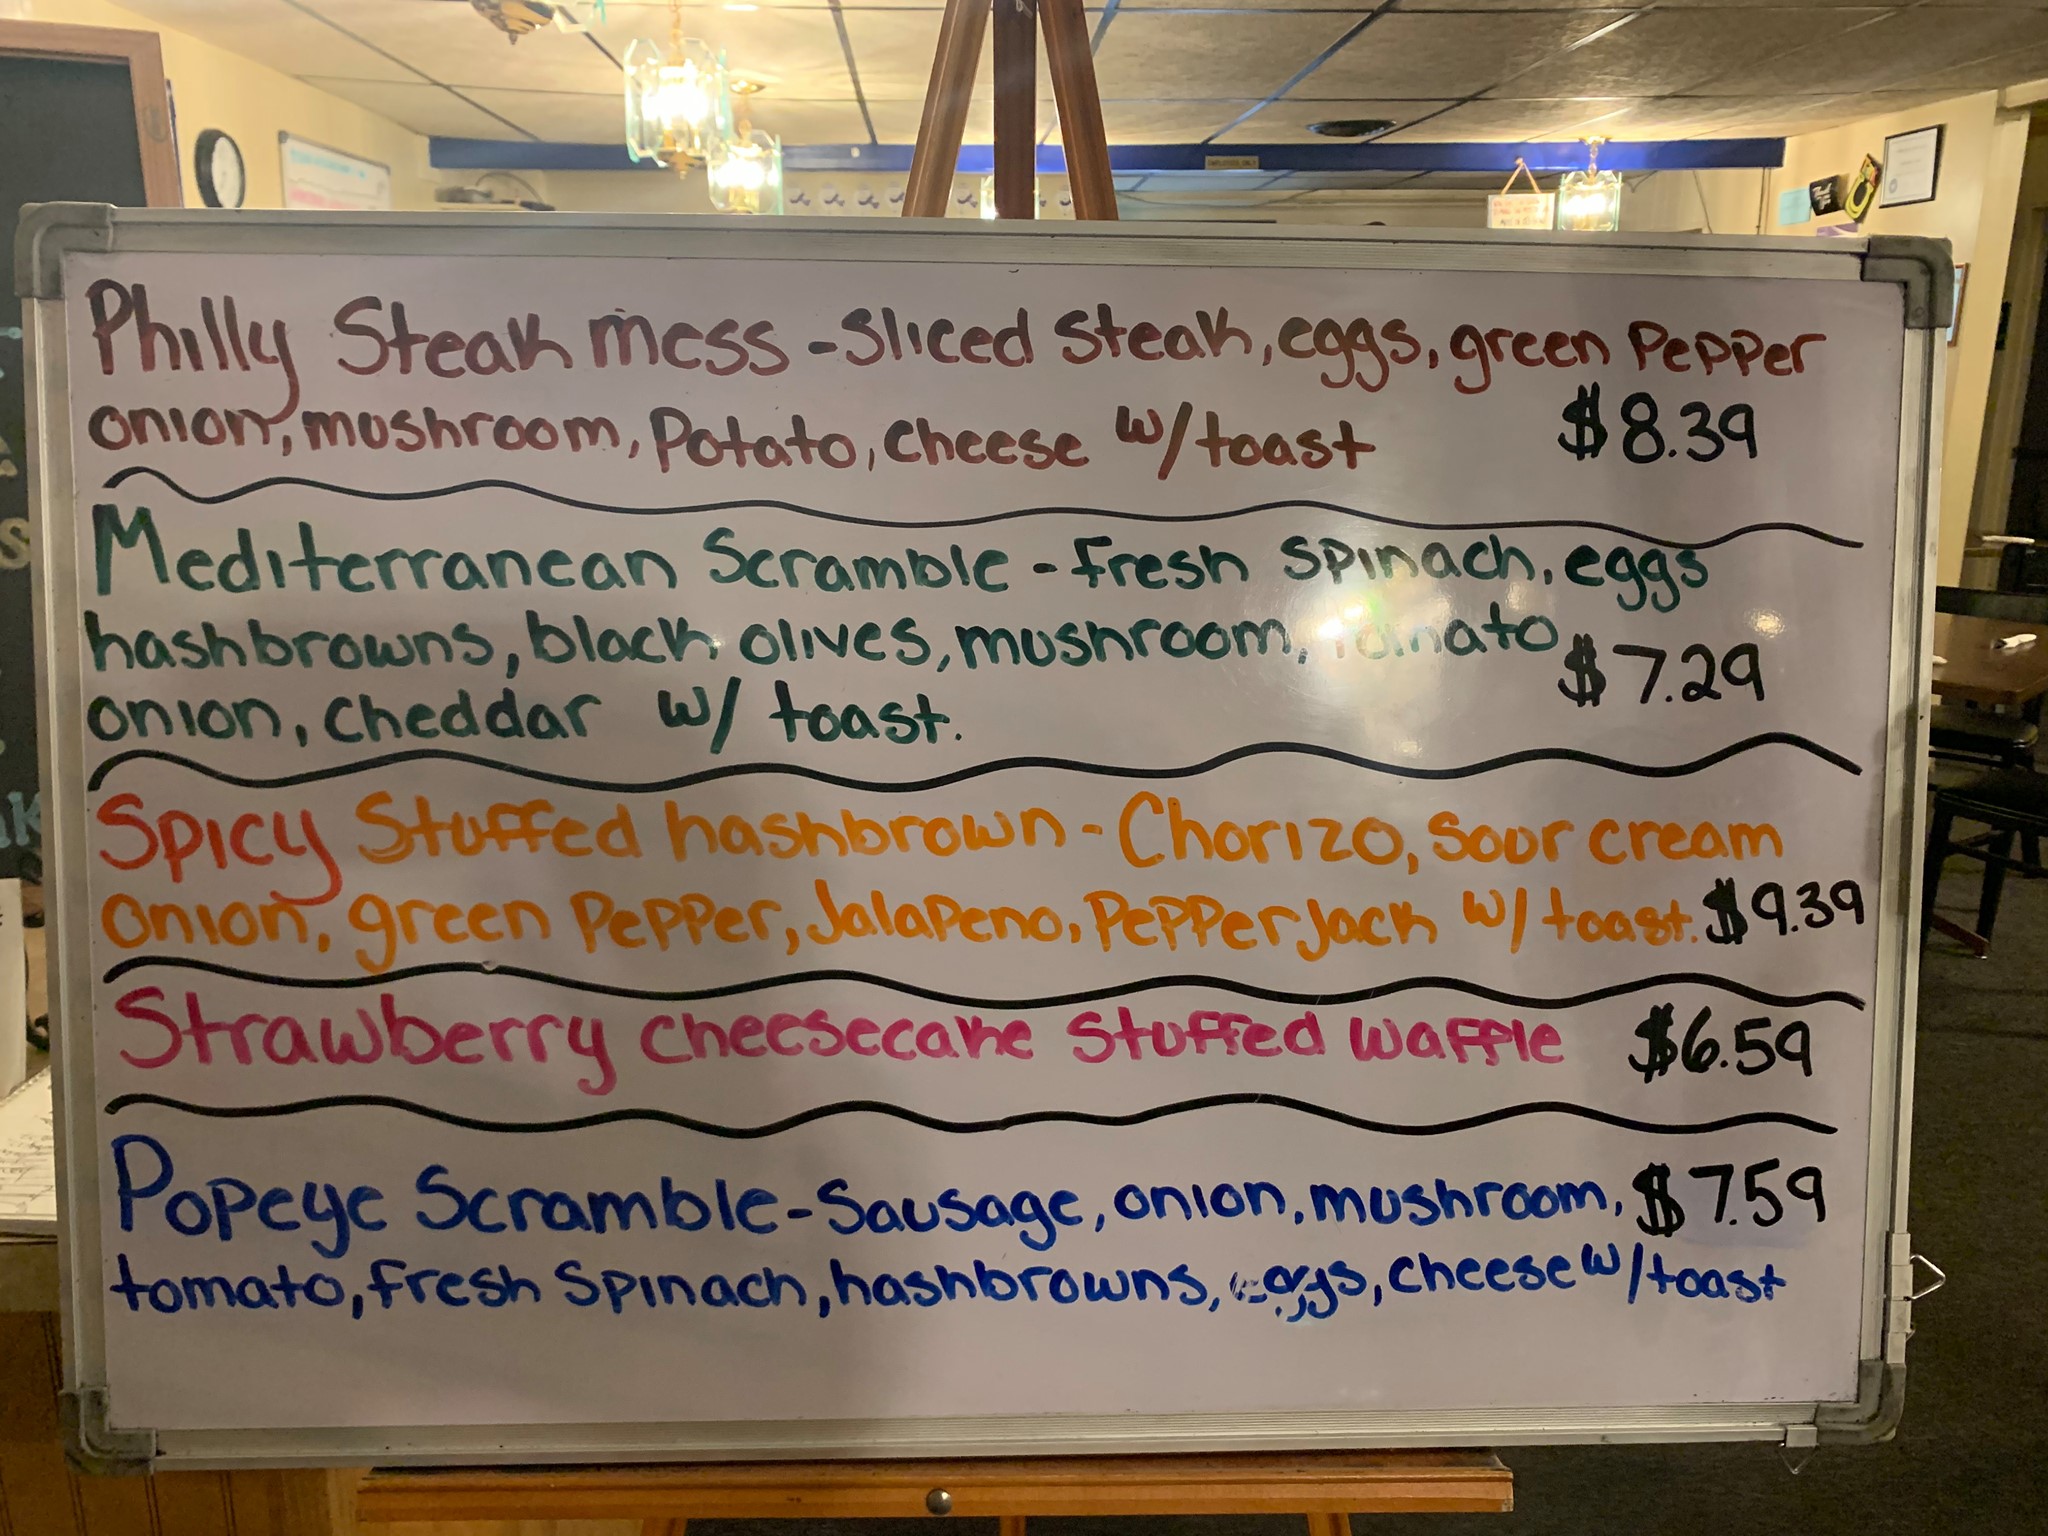 Philly Steak mess - Sliced Steak, eggs, green Pepper
onion, mushroom, Potato, cheese w/ toast $8.39
Mediterranean Scramble - fresh spinach, eggs
hashbrowns, black olives, mushroom, tomato
onion, cheddar w/ toast. $7.29
Spicy Stuffed hashbrown - Chorizo, sour cream
onion, green Pepper, Jalapeno, PepperJack w/ toast. $9.39
Strawberry cheesecake Stuffed waffle $6.59
Popeye Scramble - Sausage, onion, mushroom, $7.59
tomato, fresh Spinach, hashbrowns, eggs, cheese w/ toast
EMPLOYEES ONLY